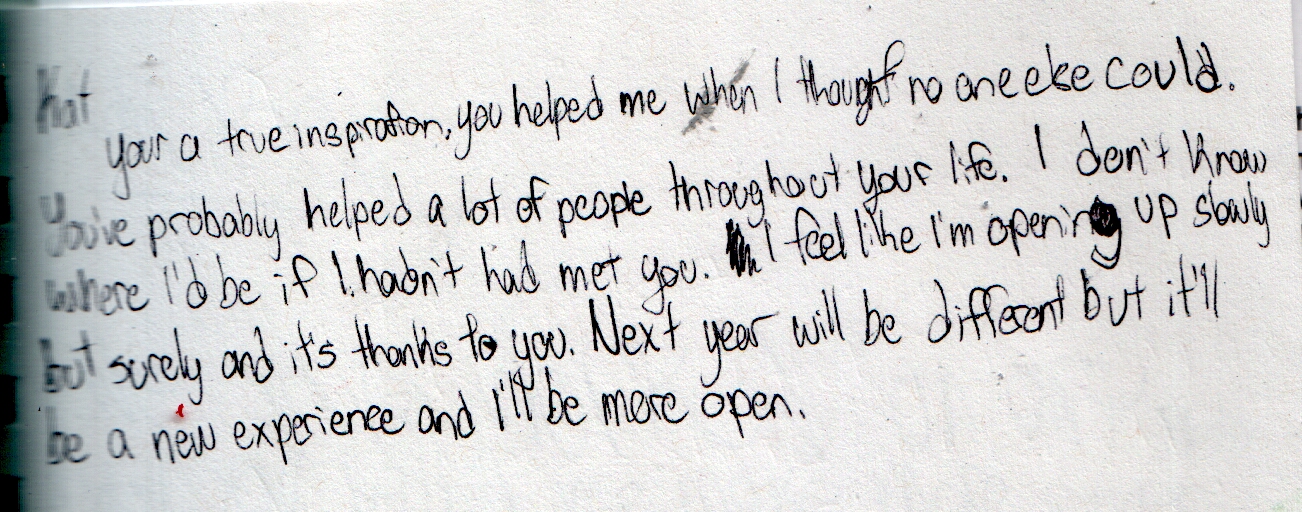 Kat
your a true inspiration, you helped me when I thought no one else could.
You've probably helped a lot of people throughout your life. I don't know
where I'd be if I hadn't had met you. I feel like I'm opening up slowly
but surely and it's thanks to you. Next year will be different but it'll
be a new experience and I'll be more open.